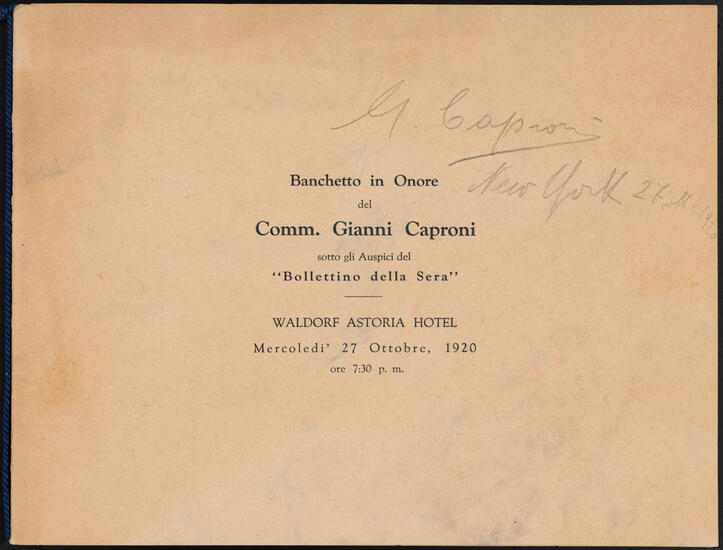 G. Caproni
New York 27 ott. 1920
Banchetto in Onore
del
Comm. Gianni Caproni
sotto gli Auspici del
"Bollettino della Sera"
WALDORF ASTORIA HOTEL
Mercoledi' 27 Ottobre, 1920
ore 7:30 p. m.